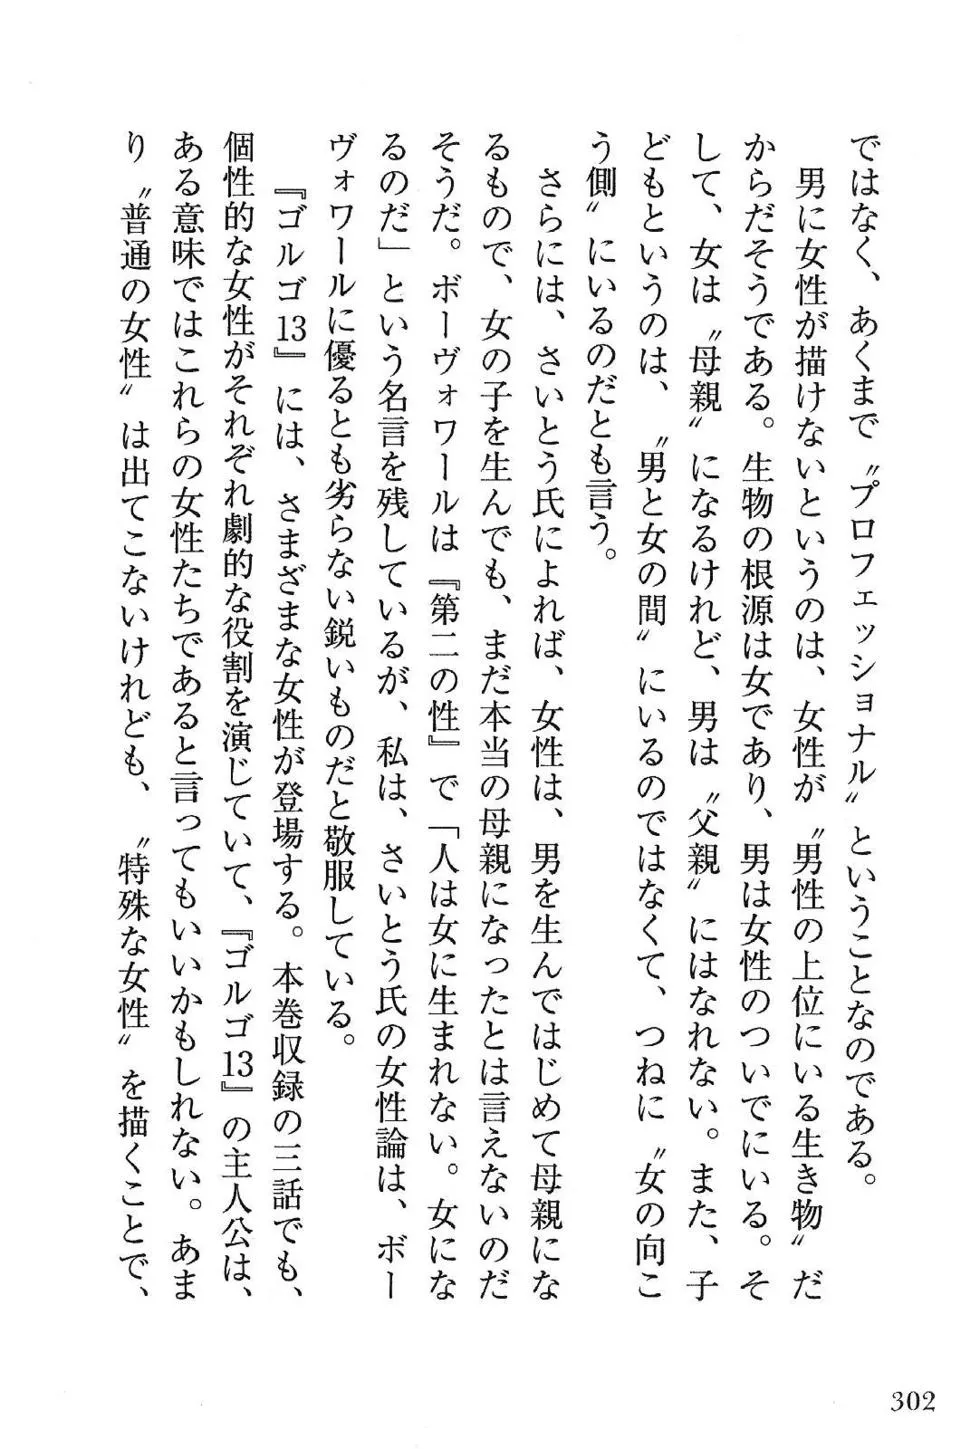 ではなく、あくまで〝プロフェッショナル〟ということなのである。
　男に女性が描けないというのは、女性が〝男性の上位にいる生き物〟だ
からだそうである。生物の根源は女であり、男は女性のついでにいる。そ
して、女は〝母親〟になるけれど、男は〝父親〟にはなれない。また、子
どもというのは、〝男と女の間〟にいるのではなくて、つねに〝女の向こ
う側〟にいるのだとも言う。
　さらには、さいとう氏によれば、女性は、男を生んではじめて母親にな
るもので、女の子を生んでも、まだ本当の母親になったとは言えないのだ
そうだ。ボーヴォワールは『第二の性』で「人は女に生まれない。女にな
るのだ」という名言を残しているが、私は、さいとう氏の女性論は、ボー
ヴォワールに優るとも劣らない鋭いものだと敬服している。
　『ゴルゴ13』には、さまざまな女性が登場する。本巻収録の三話でも、
個性的な女性がそれぞれ劇的な役割を演じていて、『ゴルゴ13』の主人公は、
ある意味ではこれらの女性たちであると言ってもいいかもしれない。あま
り〝普通の女性〟は出てこないけれども、〝特殊な女性〟を描くことで、
302